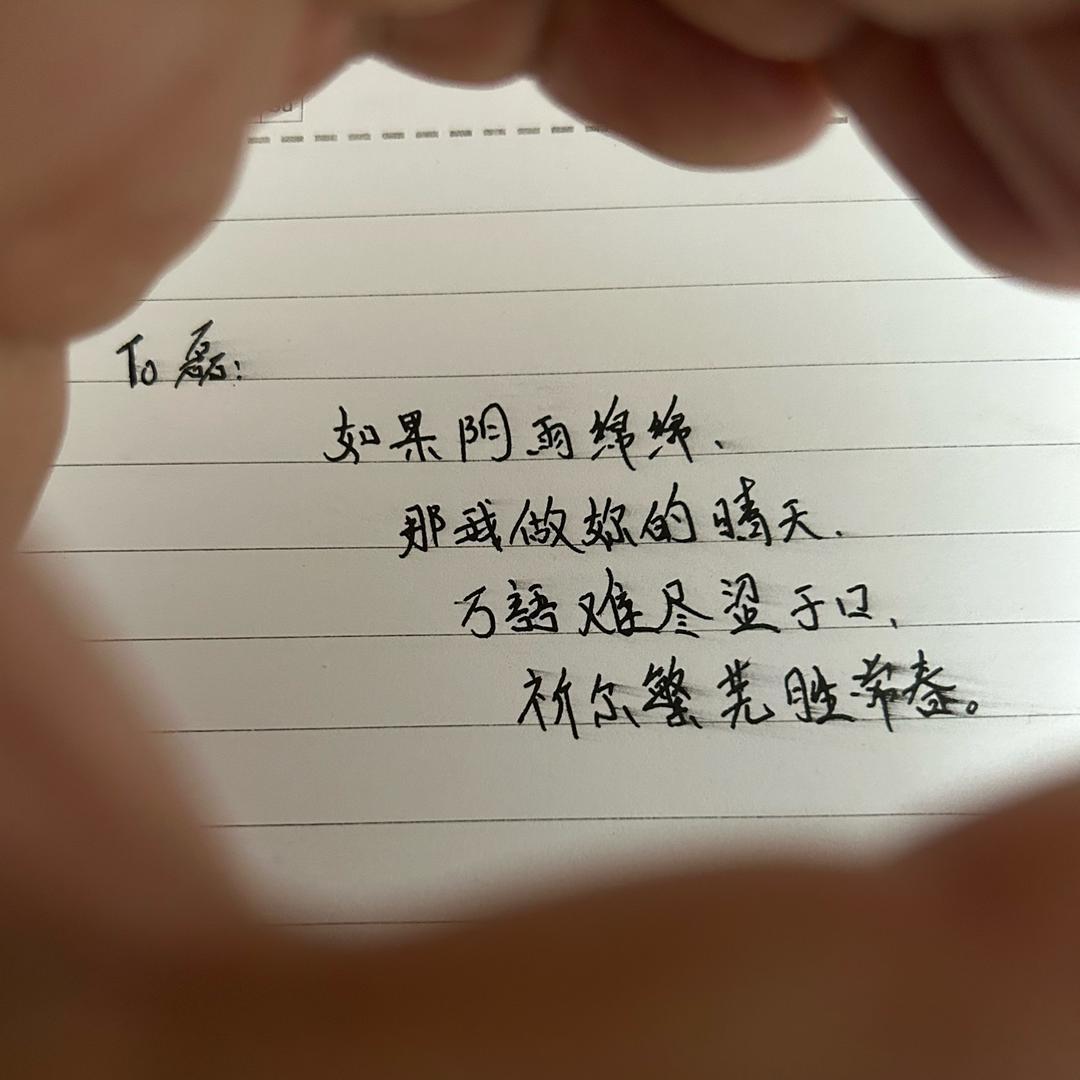 To 磊:
如果阴雨绵绵、
那我做妳的晴天.
万語难尽盕于口,
祈尔繁芜胜常春。